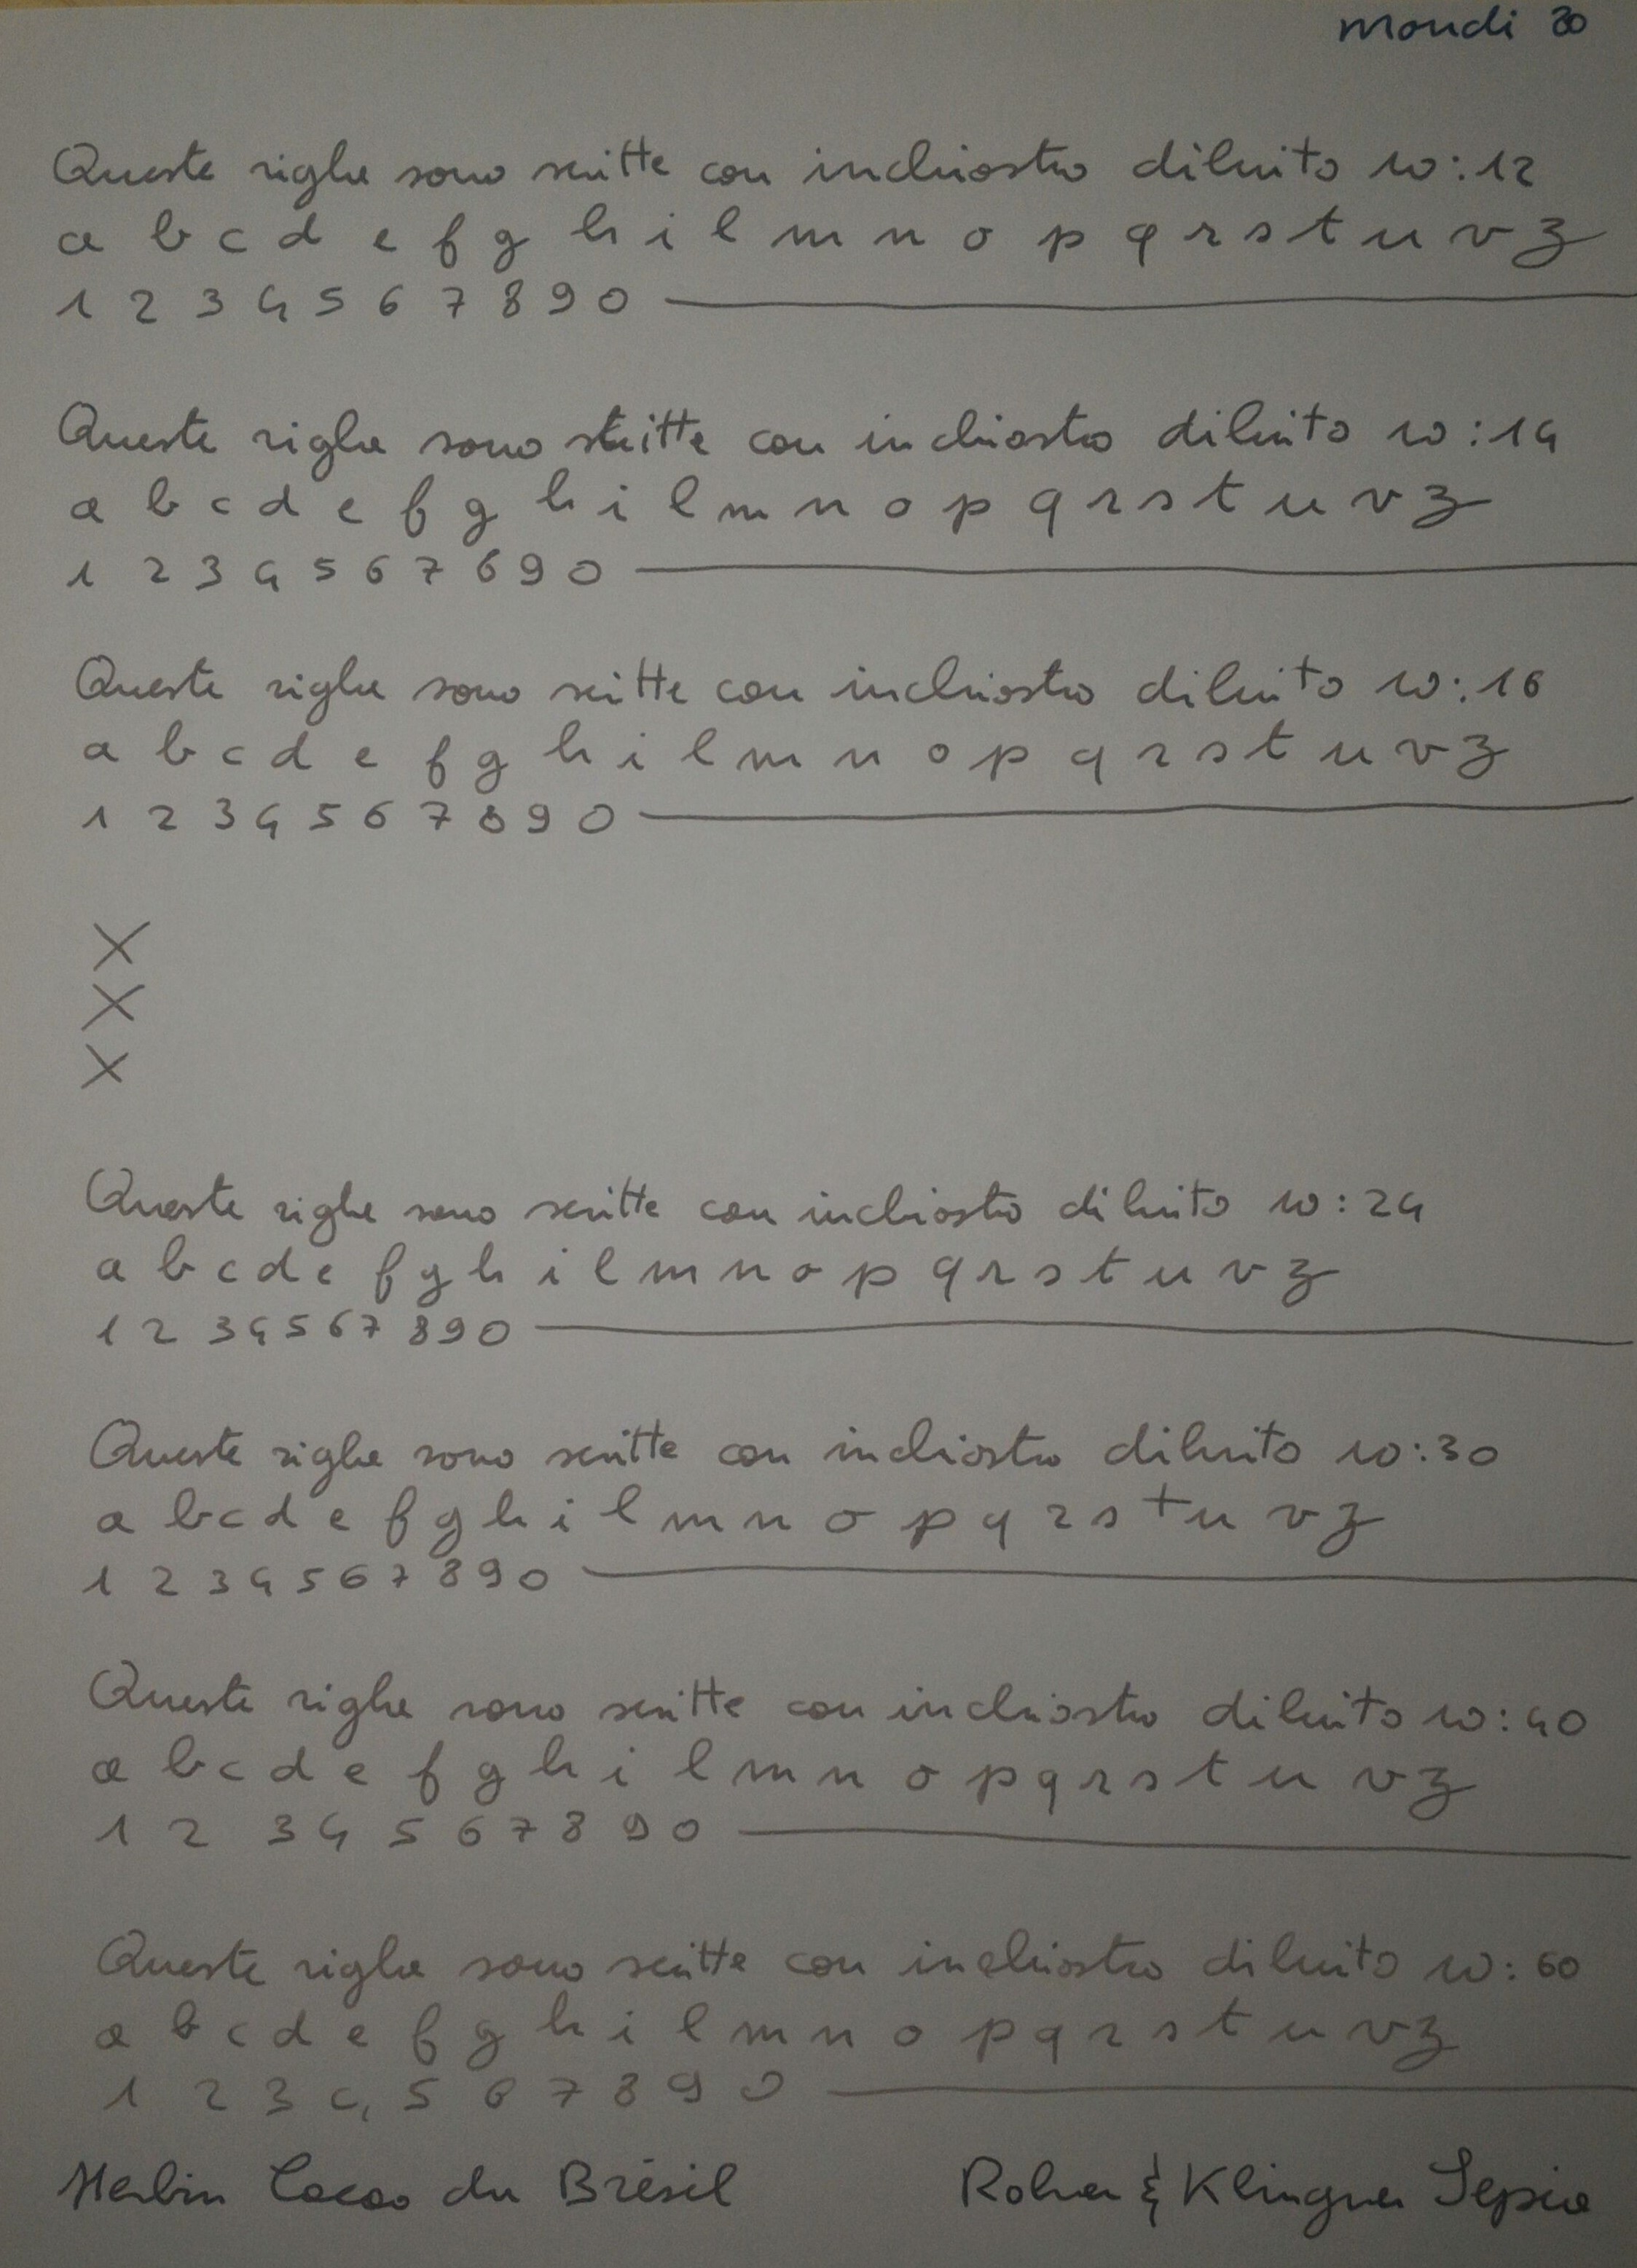 Mondi 80
Queste righe sono scritte con inchiostro diluito 10:12
a b c d e f g h i l m n o p q r s t u v z
1 2 3 4 5 6 7 8 9 0
Queste righe sono scritte con inchiostro diluito 10:14
a b c d e f g h i l m n o p q r s t u v z
1 2 3 4 5 6 7 8 9 0
Queste righe sono scritte con inchiostro diluito 10:16
a b c d e f g h i l m n o p q r s t u v z
1 2 3 4 5 6 7 8 9 0
X
X
X
Queste righe sono scritte con inchiostro diluito 10:24
a b c d e f g h i l m n o p q r s t u v z
1 2 3 4 5 6 7 8 9 0
Queste righe sono scritte con inchiostro diluito 10:30
a b c d e f g h i l m n o p q r s t u v z
1 2 3 4 5 6 7 8 9 0
Queste righe sono scritte con inchiostro diluito 10:40
a b c d e f g h i l m n o p q r s t u v z
1 2 3 4 5 6 7 8 9 0
Queste righe sono scritte con inchiostro diluito 10:60
a b c d e f g h i l m n o p q r s t u v z
1 2 3 4 5 6 7 8 9 0
Herbin Cacao du Brésil Rohrer & Klingner Sepia